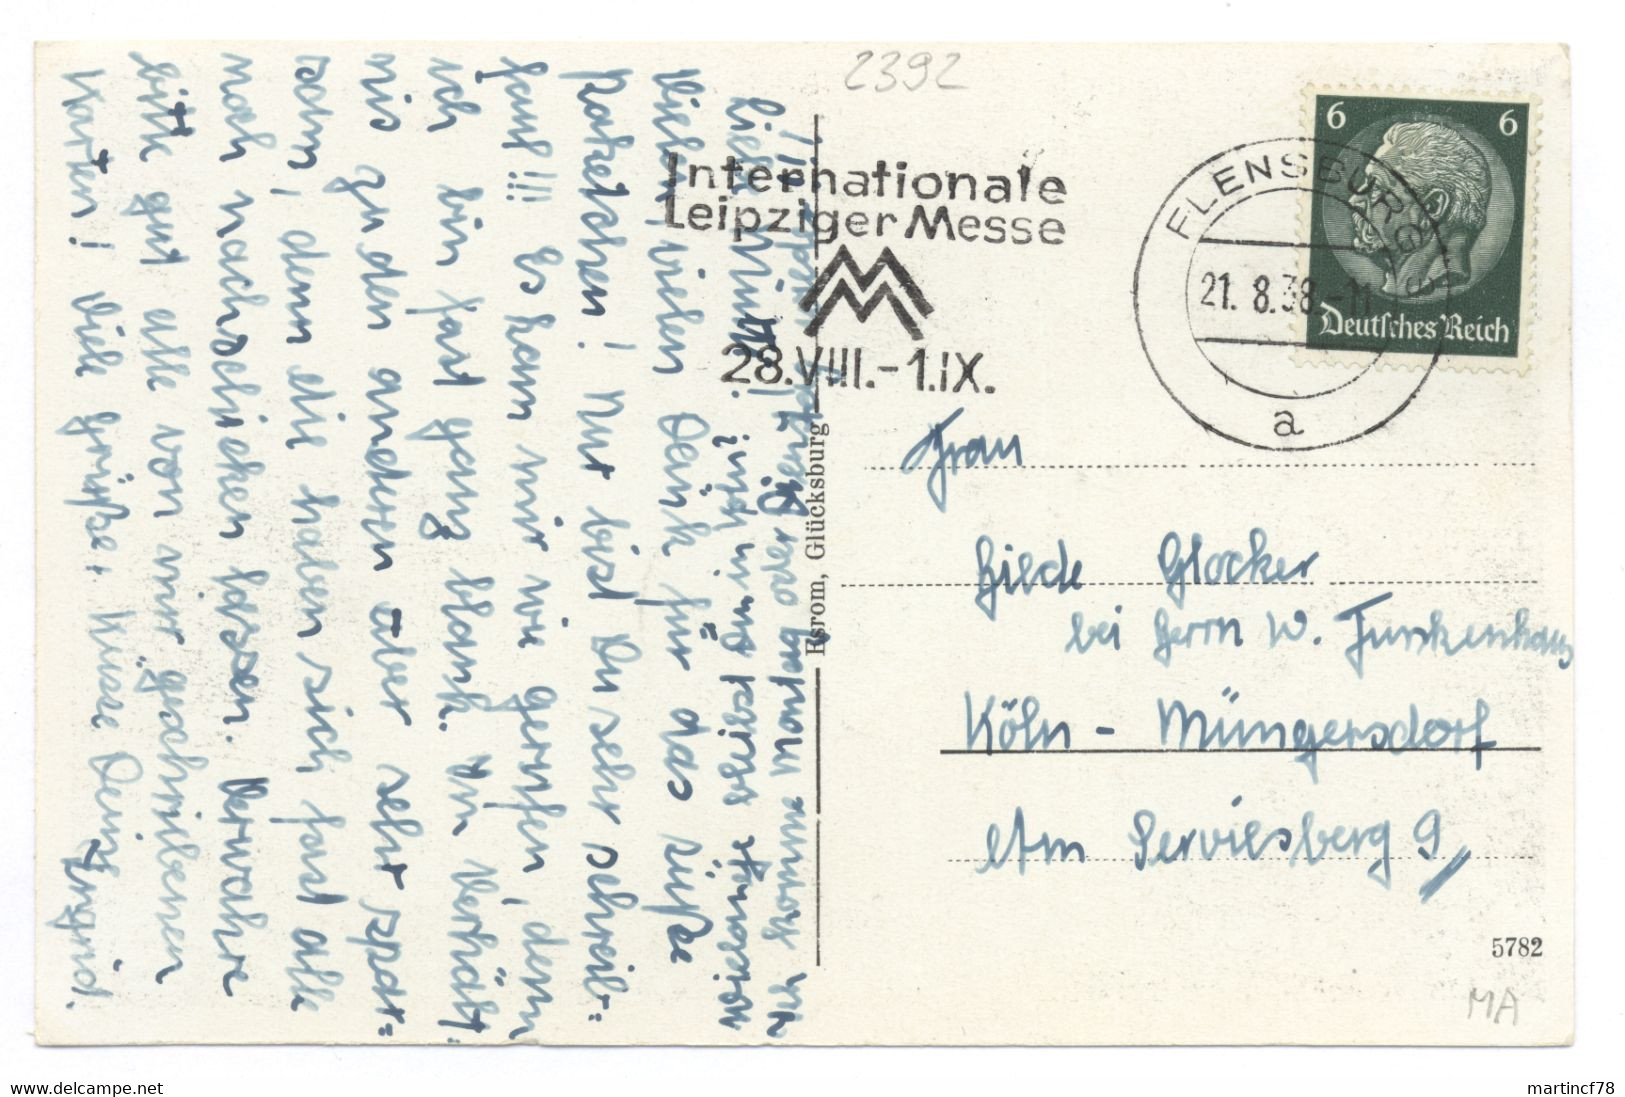 2392
Internationale
Leipziger Messe
28.VIII.-1.IX.
FLENSBURG
21. 8.38.-11
a
6 6
Deutsches Reich
Liebe
Vielen, vielen Dank für das süße
Paketchen! Nur bist Du sehr schreib-
faul!!! Es kam mir wie gerufen, denn
ich bin fast ganz blank. Im Verhält-
nis zu den anderen aber sehr spar-
sam, denn die haben sich fast alle
noch nachschicken lassen. Verwahre
bitte gut alle von mir geschriebenen
Karten! Viele Grüße + Küsse Deine
Ingrid.
Ich komme Montag oder Dienstag wieder!!
Esrom, Glücksburg
Frau
Hilde Glocker
bei Herrn W. Funkenhaus
Köln - Müngersdorf
Am Serviesberg 9
5782
MA
www.delcampe.net
martincf78